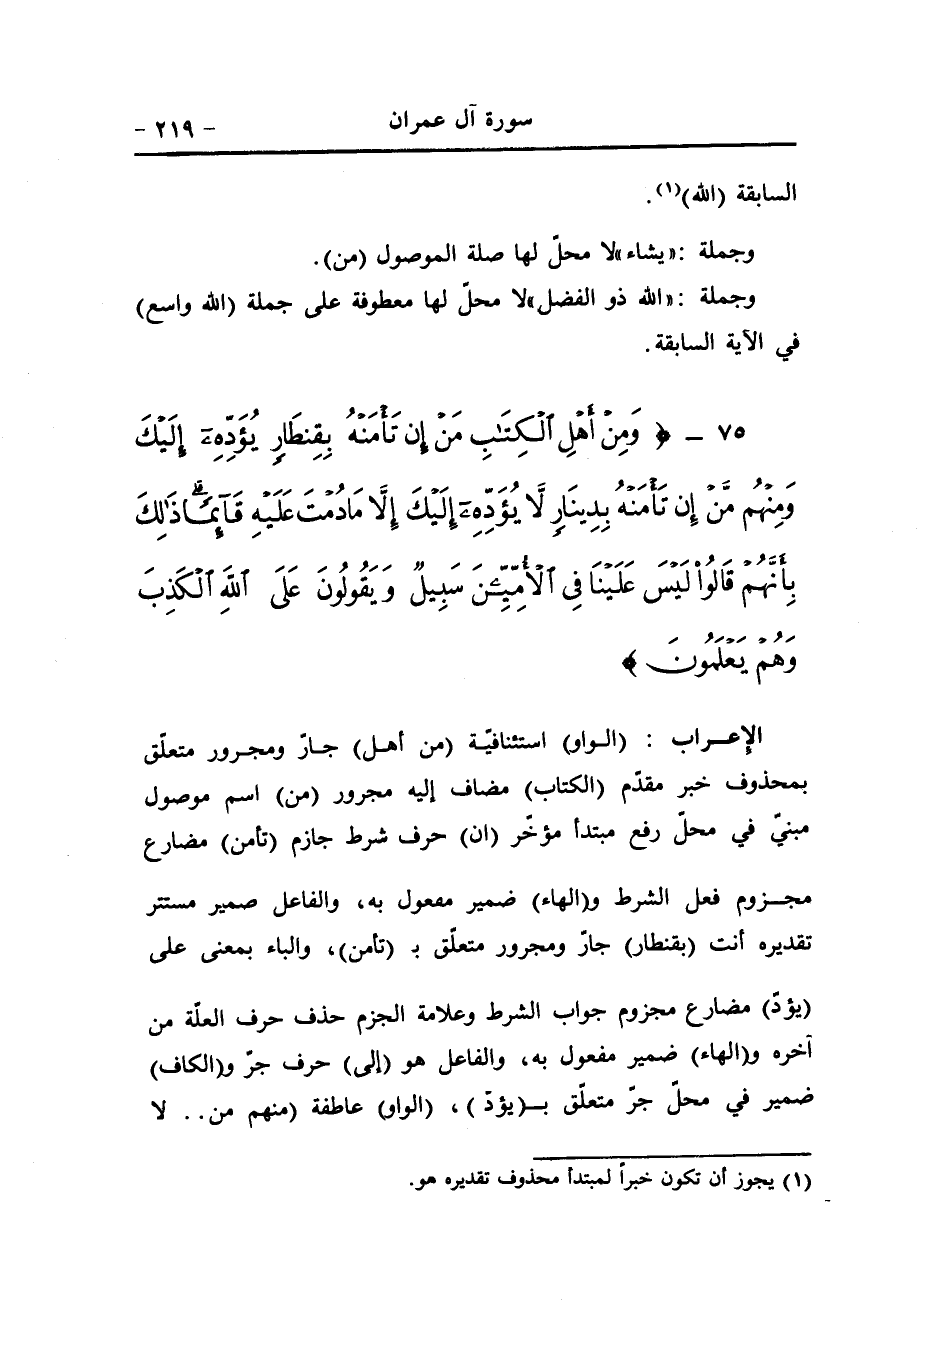 سورة آل عمران - ٢١٩ -
السابقة (الله)(١).
وجملة :«يشاء»لا محلّ لها صلة الموصول (من).
وجملة :«الله ذو الفضل»لا محلّ لها معطوفة على جملة (الله واسع)
في الآية السابقة.
٧٥ ــ ﴿ وَمِنْ أَهْلِ ٱلْكِتَٰبِ مَنْ إِن تَأْمَنْهُ بِقِنطَارٍ يُؤَدِّهِۦٓ إِلَيْكَ
وَمِنْهُم مَّنْ إِن تَأْمَنْهُ بِدِينَارٍ لَّا يُؤَدِّهِۦٓ إِلَيْكَ إِلَّا مَا دُمْتَ عَلَيْهِ قَآئِمًاۗ ذَٰلِكَ
بِأَنَّهُمْ قَالُوا۟ لَيْسَ عَلَيْنَا فِى ٱلْأُمِّيِّۦنَ سَبِيلٌ وَيَقُولُونَ عَلَى ٱللَّهِ ٱلْكَذِبَ
وَهُمْ يَعْلَمُونَ ﴾
الإعـــراب : (الـواو) استئنافيّـة (من أهـل) جـارّ ومجـرور متعلّق
بمحذوف خبر مقدّم (الكتاب) مضاف إليه مجرور (من) اسم موصول
مبنيّ في محلّ رفع مبتدأ مؤخّر (ان) حرف شرط جازم (تأمن) مضارع
مجـــزوم فعل الشرط و(الهاء) ضمير مفعول به، والفاعل ضمير مستتر
تقديره أنت (بقنطار) جارّ ومجرور متعلّق بـ (تأمن)، والباء بمعنى على
(يؤدّ) مضارع مجزوم جواب الشرط وعلامة الجزم حذف حرف العلّة من
آخره و(الهاء) ضمير مفعول به، والفاعل هو (إلى) حرف جرّ و(الكاف)
ضمير في محلّ جرّ متعلّق بــ(يؤدّ )، (الواو) عاطفة (منهم من.. لا
(١) يجوز أن تكون خبراً لمبتدأ محذوف تقديره هو.